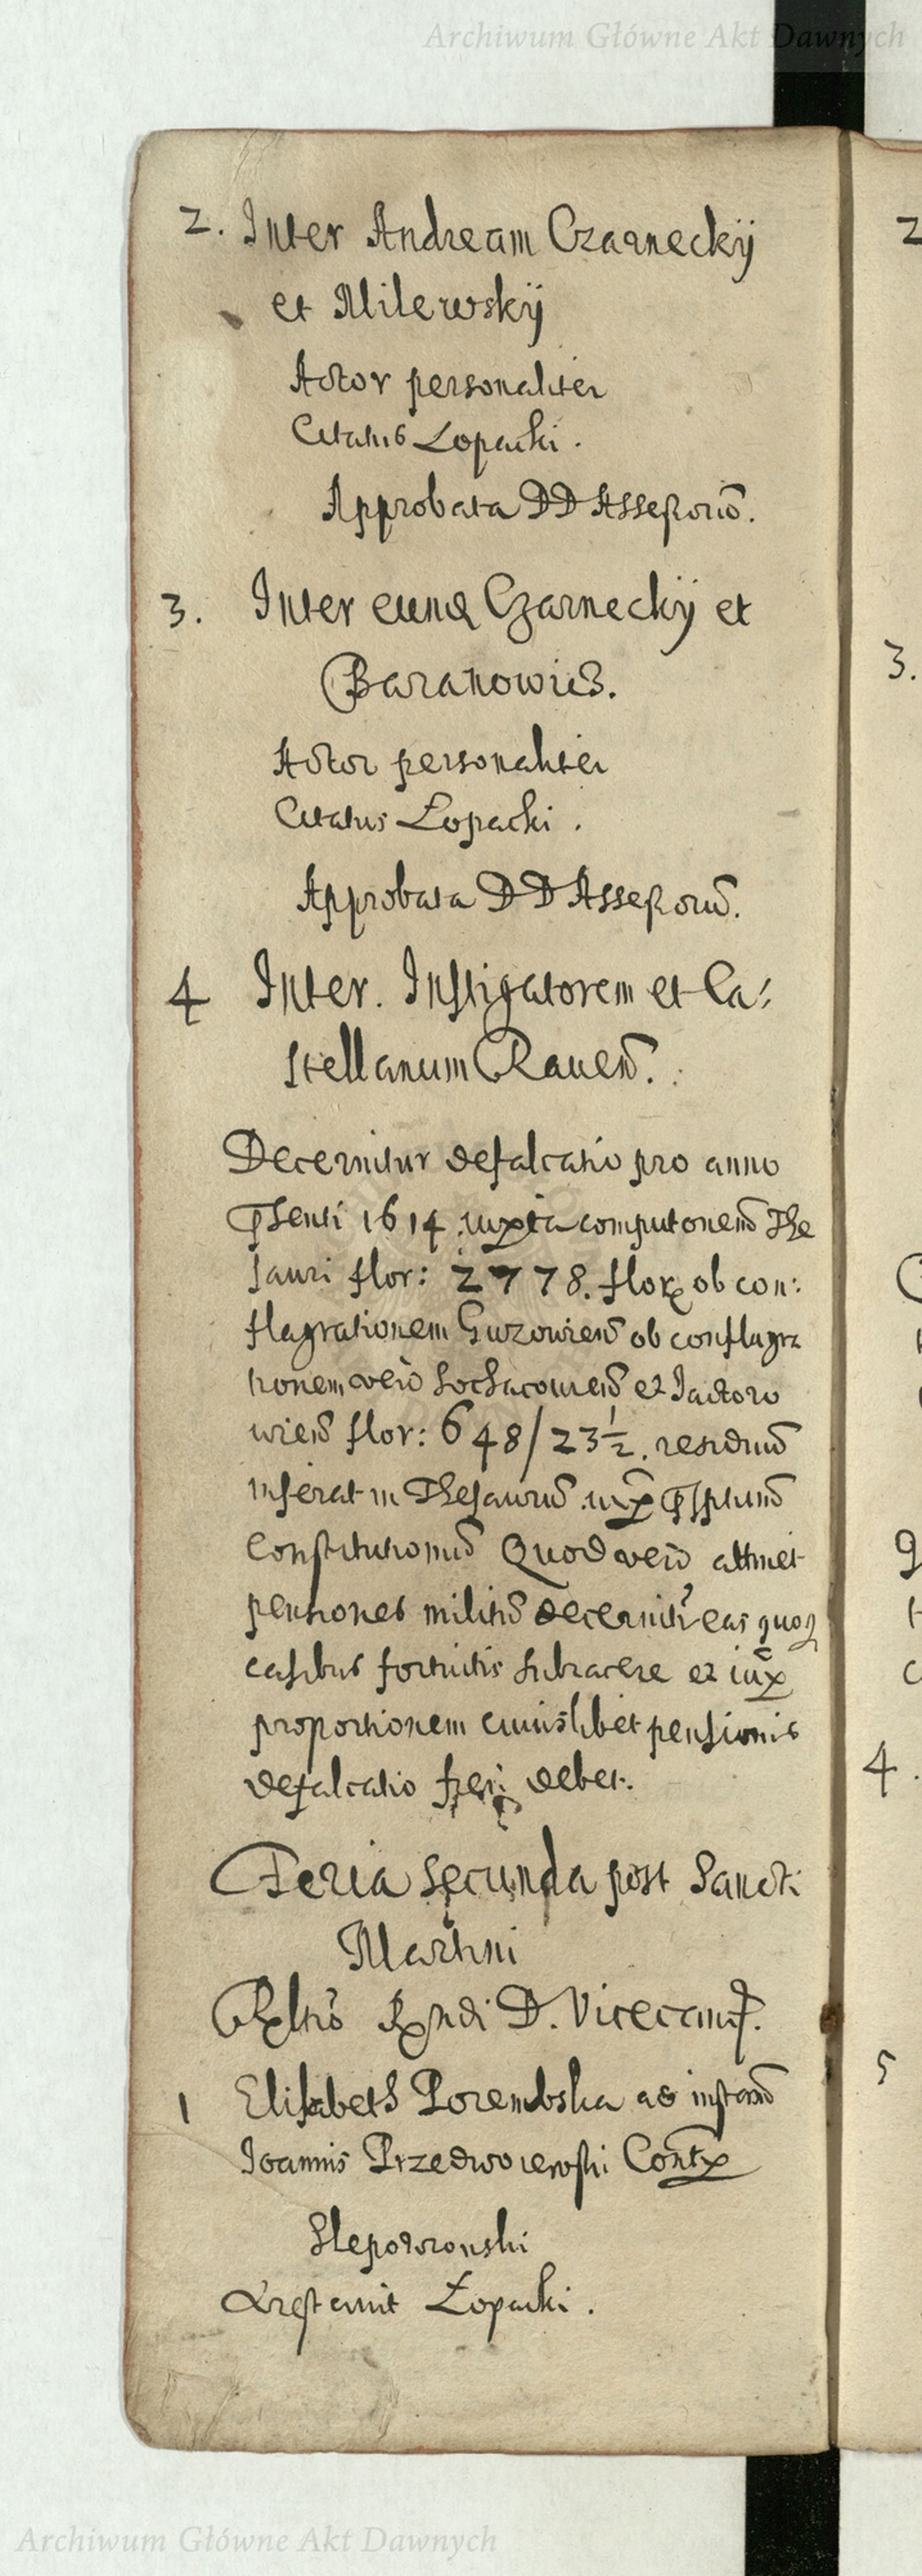 Archiwum Główne Akt Dawnych
2. Inter Andream Czarneckÿ
et Milewskÿ
Actor personaliter
Citatus Łopacki.
Approbata DD Assessorũ.
3. Inter eunde Czarneckÿ et
Baranowicz.
Actor personaliter
Citatus Łopacki.
Approbata DD Assessorũ.
4 Inter. Instigatorem et Ca:
stellanum Raueñ.
Decernitur defalcatio pro anno
pñsenti 1614 iuxta computoneñ The
sauri flor: 2778. flor ob con:
flagrationem Guzowieñ ob conflagra
tionem verò Sochacovieñ et Jactoro
wieñ flor: 648/23½. residuũ
inferat in Thesaurũ iux
Constitutionũ Quod verò attinet
pensiones militũ decernitr eas quoq
casibus fortuitis subiacere et iux
proportionem cuiuslibet pensionis
defalcatio fieri debet.
Feria secunda post Sancti
Martini
Rndi D. Vicecanc.
1 Elisabeth Porembska ad instanñ
Ioannis Przedwoiewski Contx
Slepowronski
Łopacki.
Archiwum Główne Akt Dawnych